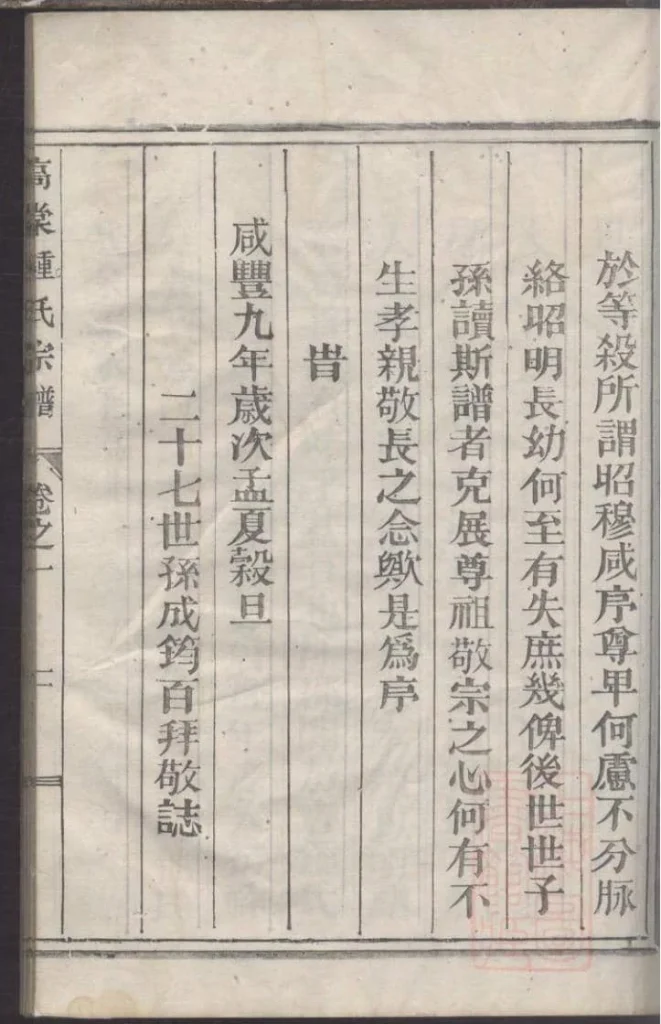 於等殺所謂昭穆咸序尊卑何慮不分脉
絡昭明長幼何至有失庶幾俾後世世子
孫讀斯譜者克展尊祖敬宗之心何有不
生孝親敬長之念歟是爲序
旹
咸豐九年歲次孟夏穀旦
二十七世孫成筠百拜敬誌
高棠鍾氏宗譜
卷之一